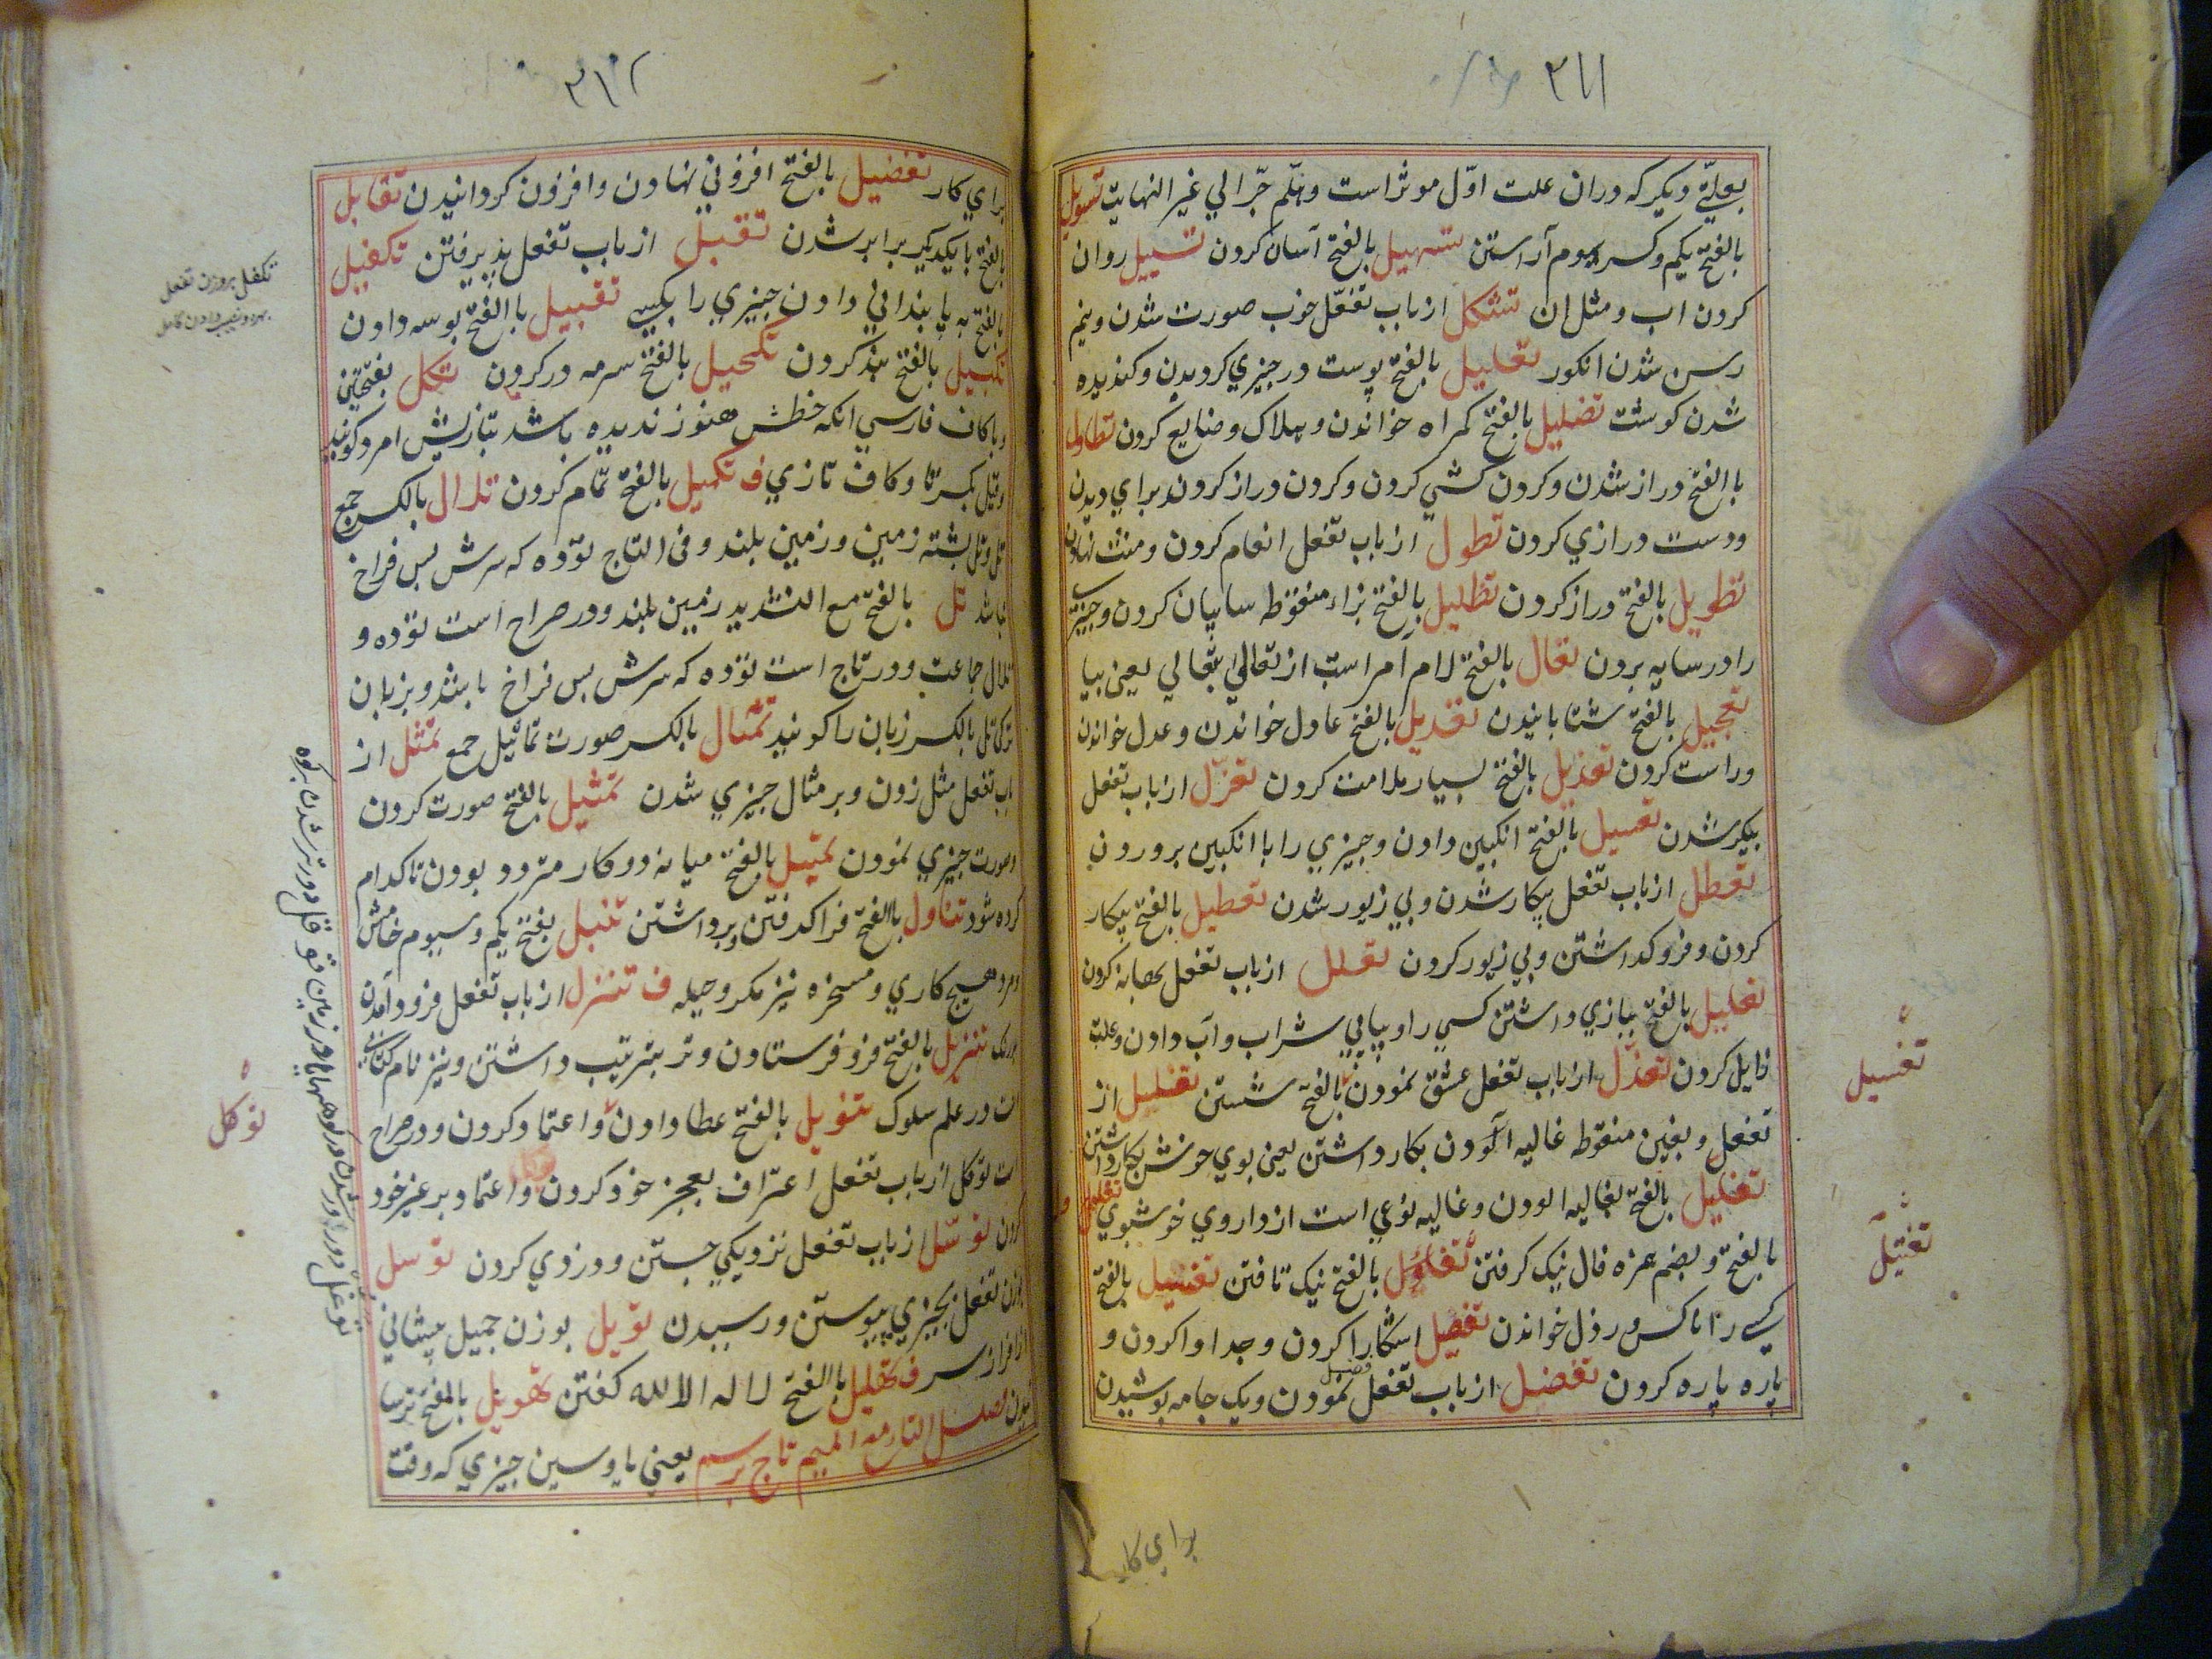 ٣١١
بعلیّتے دیکر که دران علت اوّل موثر است وہلّم جّرا الي غیر النهایت تسویل
بالفتح یکم وکسر سوم آراستن تسهیل بالفتح آسان کردن تسییل روان
کردن اب ومثل ان تشکل ازباب تفعّل خوب صورت شدن ونیم
رس شدن انکور تغلیل بالفتح پوست در چیزي کردیدن وکندیده
شدن کوشت تضلیل بالفتح کمراه خواندن وہلاک وضایع کردن تطاول
باالفتح دراز شدن وکردن کشي کردن وکردن دراز کردن براي دیدن
ودست درازي کردن تطول ازباب تفعل انعام کردن ومنت نهادن
تطویل بالفتح دراز کردن تظلیل بالفتح بزاء منقوطه سایبان کردن وچیزے
را در سایه بردن تعال بالفتح لام امر است از تعالي یتعالي یعنی بیا
تعجیل بالفتح شتابانیدن تعدیل بالفتح عادل خواندن وعدل خواندن
وراست کردن تعذیل بالفتح بسیار ملامت کردن تعزّل ازباب تفعل
بیکیر شدن تعسیل بالفتح انکبین دادن وچیزي را با انکبین پروردن
تعطل ازباب تفعل بیکار شدن وبي زیور شدن تعطیل بالفتح بیکار
کردن وفرو کداشتن وبي زیور کردن تعلل ازباب تفعل بهانه کردن
تعلیل بالفتح ببازي داشتن کسي را وپیاپي شراب وآب دادن وعلت
زایل کردن تغزّل ازباب تفعل عشق نمودن بالفتح شستن تغلیل از
تفعل وبغین منقوطه غالیه آلودن بکار داشتن یعنی بوي خوش بکار داشتن
تغلیل بالفتح بغالیه الودن وغالیه نوعي است از داروي خوشبوي
بالفتح وبضم همزه فال نیک کرفتن تفاؤل بالفتح نیک تافتن تفسیل بالفتح
کسے را ناکس ورذل خواندن تفصیل اشکارا کردن وجدا وا کردن و
پاره پاره کردن تفضل ازباب تفعل نمودن ویک جامه پوشیدن
فضیل
تغسیل
تفتیل
براي کار
٣١٢
براي کار تفضیل بالفتح افزوني نهادن وافزون کردانیدن تقابل
بالفتح بایکدیکر برابر شدن تقبل ازباب تفعل پذیرفتن تکفیل
بالفتح به پابنداني دادن چیزي را بکسے تقبیل باالفتح بوسه دادن
تکبیل بالفتح بند کردن تکحیل بالفتح سرمه در کردن تکل بفتحتین
وباکاف فارسي انکه خطش هنوز ندیده باشد بتازیش امرد کویند
وقیل بکسر تا وکاف تازي ف تکمیل بالفتح تمام کردن تلال بالکسر جمع
تل وتل پشته زمین وزمین بلند وفی التاج توده که سرش بس فراخ
نباشد تل بالفتح مع التشدید زمین بلند ودر صراح است توده و
تلال جماعت ودر تاج است توده که سرش بس فراخ باشد وبزبان
ترکي تل بالکسر زبان را کویند تمثال بالکسر صورت تماثیل جمع تمثل از
باب تفعل مثل زدن وبر مثال چیزي شدن تمثیل بالفتح صورت کردن
وصورت چیزي نمودن تمییل بالفتح میانه دو کار متردد بودن تا کدام
کرده شود تناول باالفتح فرا کرفتن وبرداشتن تنبل بفتح یکم وسیوم خامش
ومرد هیچ کاري ومسخره نیز مکر وحیله ف تنزل ازباب تفعل فرود آمدن
تنزیل بالفتح فرو فرستادن وترتیب داشتن ونیز نام کتابے
در علم سلوک تنویل بالفتح عطا دادن واعتماد کردن ودر صراح
است توکل ازباب تفعل اعتراف بعجز خود کردن واعتماد بر غیر خود
کردن توسّل ازباب تفعل نزدیکي جستن ودزدي کردن توسل
بوزن تفعل بچیزي پیوستن ورسیدن تویل بوزن جمیل پیشاني
از فراز سر ف تهلیل باالفتح لا اله الا الله کفتن تهویل بالفتح ترسا
نیدن فصل التاء مع المیم تاج برسم یعنی ناوسین چیزي که وقت
تکفل بروزن تفعل
توکل